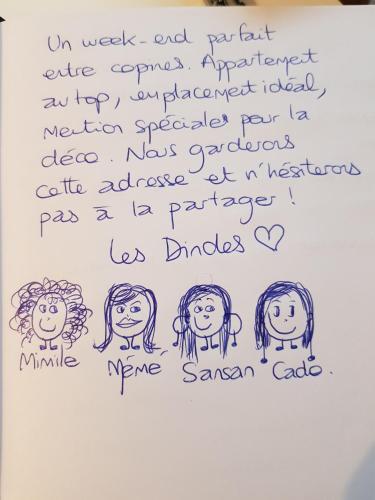 Un week-end parfait
entre copines. Appartement
au top, emplacement idéal,
mention spéciales pour la
déco. Nous garderons
cette adresse et n'hésiterons
pas à la partager !
Les Dindes ♡
Mimile Mémé Sansan Cado.